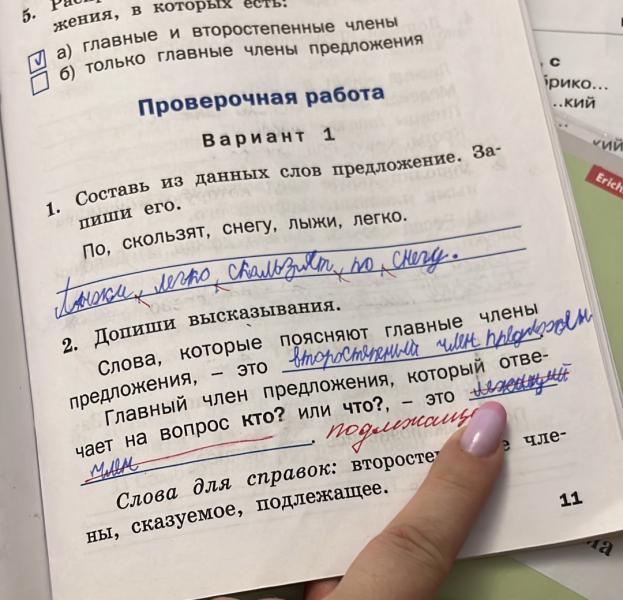 5.
жения, в которых есть:
а) главные и второстепенные члены
б) только главные члены предложения
Проверочная работа
Вариант 1
1. Составь из данных слов предложение. За-
пиши его.
По, скользят, снегу, лыжи, легко.
Лыжи, легко, скальзят, по, снегу.
2. Допиши высказывания.
Слова, которые поясняют главные члены
предложения, – это второстепенный член предложен
Главный член предложения, который отве-
чает на вопрос кто? или что?, – это
член. подлежаще
Слова для справок: второстe е чле-
ны, сказуемое, подлежащее.
11
с
брико...
..кий
кий
Erich